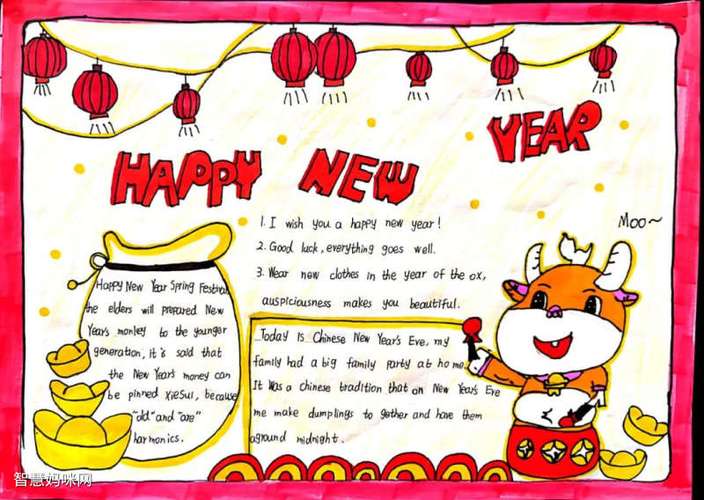 HAPPY NEW YEAR
Moo~
1. I wish you a happy new year!
2. Good luck, everything goes well.
3. Wear new clothes in the year of the ox,
auspiciousness makes you beautiful.
Happy New Year Spring Festival
the elders will prepared New
Year's monley to the younger
generation, it's said that
the New Year's money can
be pinned XieSui, because
"old" and "are"
harmonics.
Today is Chinese New Year's Eve, my
family had a big family party at home.
It was a chinese tradition that on New Year's Eve
me make dumplings to gether and have them
aground midnight.
智慧妈咪网